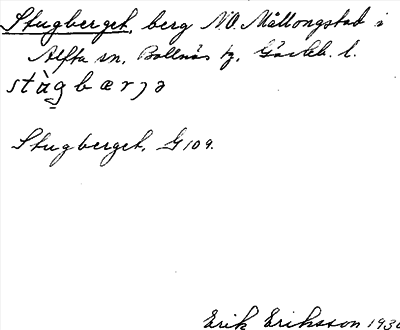 Stugberget, berg N.O. Mållongstad i
Alfta sn, Bollnäs tg, Gävleb. l.
stùgbærjə
Stugberget, G109.
Erik Eriksson 193